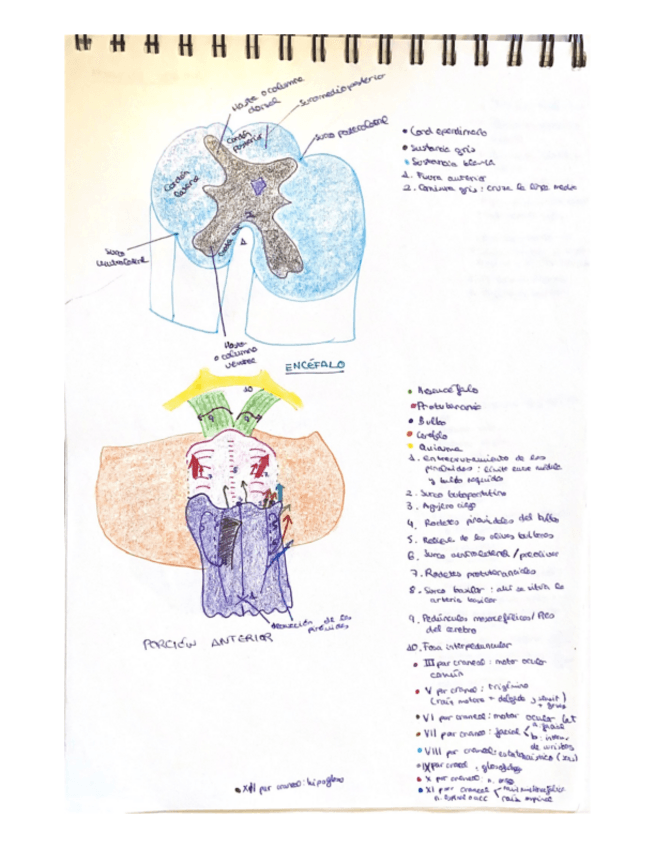 Hasta o columna
dorsal
Surco medio posterior
Surco posterolateral
Cordón
Posterior
Cordón
lateral
Surco
ventrolateral
1
Hasta
o columna
ventral
• Cond ependimario
• Sustancia gris
• Sustancia blanca
1. Fisura anterior
2. Comisura gris: cruza la línea media
ENCÉFALO
10
• Mesencéfalo
• Protuberancia
• Bulbo
• Cerebelo
• Quiasma
1. Entrecruzamiento de las
pirámides: límite entre médula
y bulbo raquídeo
2. Surco bulbopontino
3. Agujero ciego
4. Rodetes piramidales del bulbo
5. Relieve de las olivas bulbares
6. Surco ventrolateral / preolivar
7. Rodetes protuberanciales
8. Surco basilar: ahí se ubica la
arteria basilar
9. Pedúnculos mesencefálicos / Pies
del cerebro
10. Fosa interpeduncular
• III par craneal: motor ocular
común
• V par craneal: trigémino
(raíz motora + delgada y sensit
+ grues
• VI par craneal: motor ocular
• VII par craneo: facial
• VIII par craneal: estatoacústico
• IX par craneal:
• X par craneal: n.
• XI par craneal
• XII par craneal: hipogloso
decusación de las
pirámides
PORCIÓN ANTERIOR